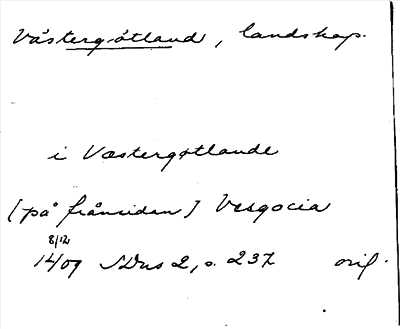 Västergötland, landskap.
i Væstergøtlande
[på frånsidan] Vesgocia
8/12
1409 SDns 2, s. 237 orig.